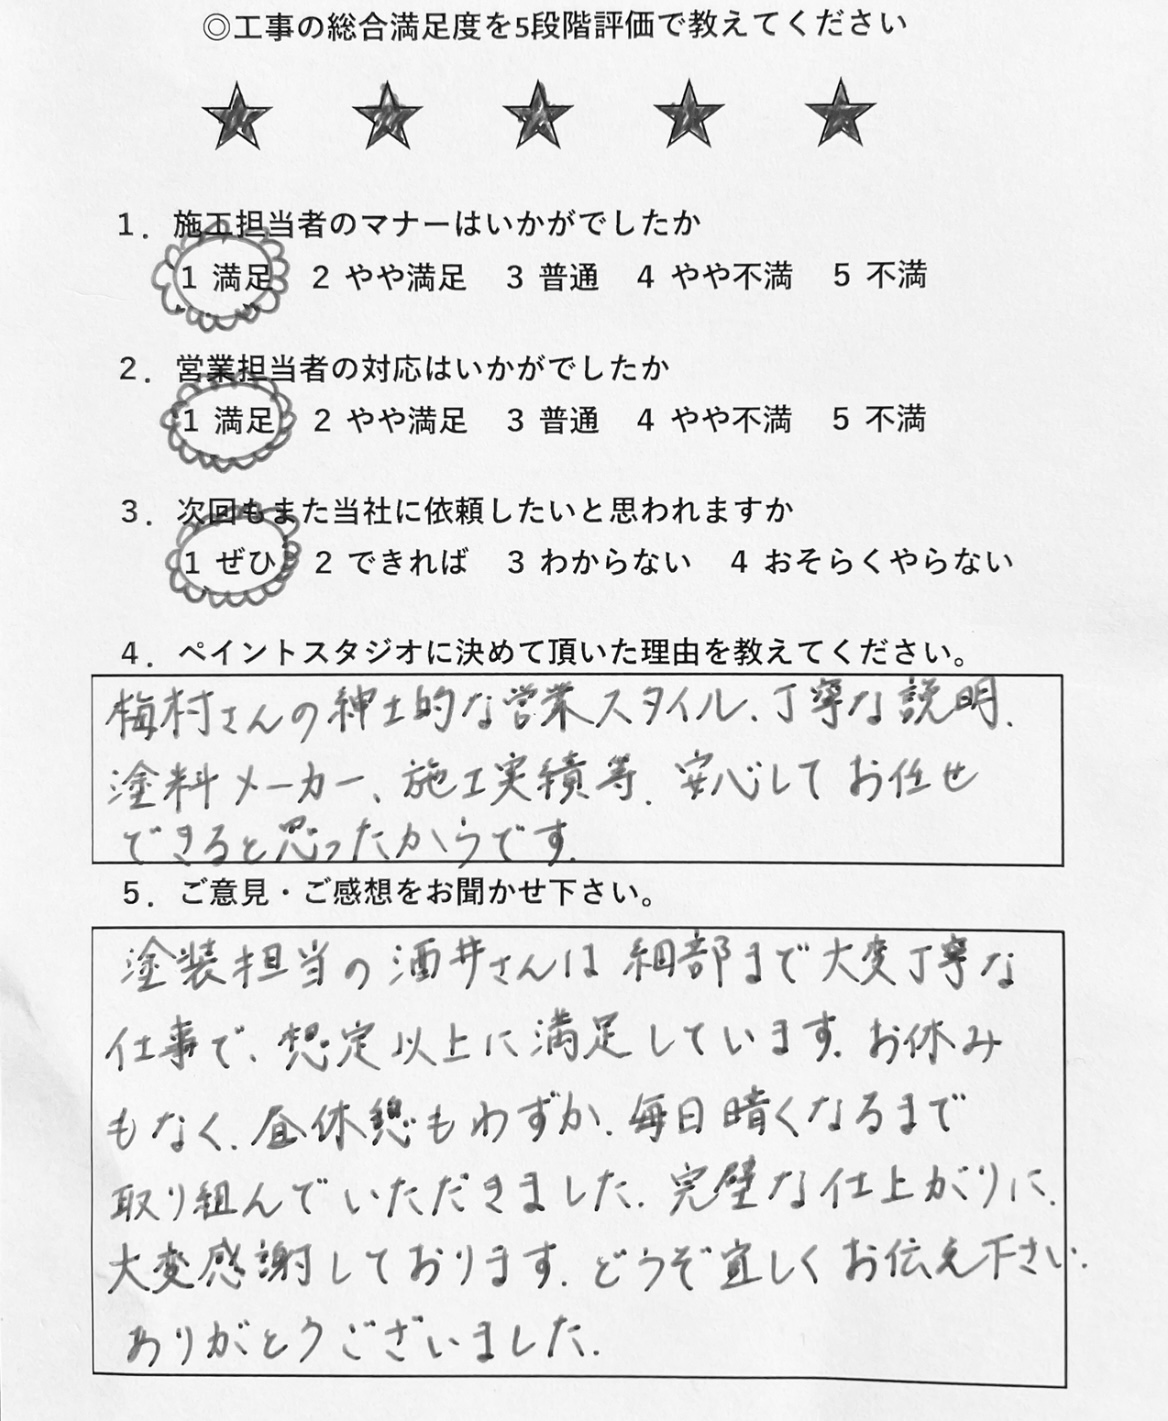 ◎工事の総合満足度を5段階評価で教えてください
★ ★ ★ ★ ★
1．施工担当者のマナーはいかがでしたか
1 満足 2 やや満足 3 普通 4 やや不満 5 不満
2．営業担当者の対応はいかがでしたか
1 満足 2 やや満足 3 普通 4 やや不満 5 不満
3．次回もまた当社に依頼したいと思われますか
1 ぜひ 2 できれば 3 わからない 4 おそらくやらない
4．ペイントスタジオに決めて頂いた理由を教えてください。
梅村さんの紳士的な営業スタイル、丁寧な説明、
塗料メーカー、施工実績等、安心してお任せ
できると思ったからです。
5．ご意見・ご感想をお聞かせ下さい。
塗装担当の酒井さんは細部まで大変丁寧な
仕事で、想定以上に満足しています。お休み
もなく、昼休憩もわずか、毎日暗くなるまで
取り組んでいただきました。完璧な仕上がりに、
大変感謝しております。どうぞ宜しくお伝え下さい。
ありがとうございました。